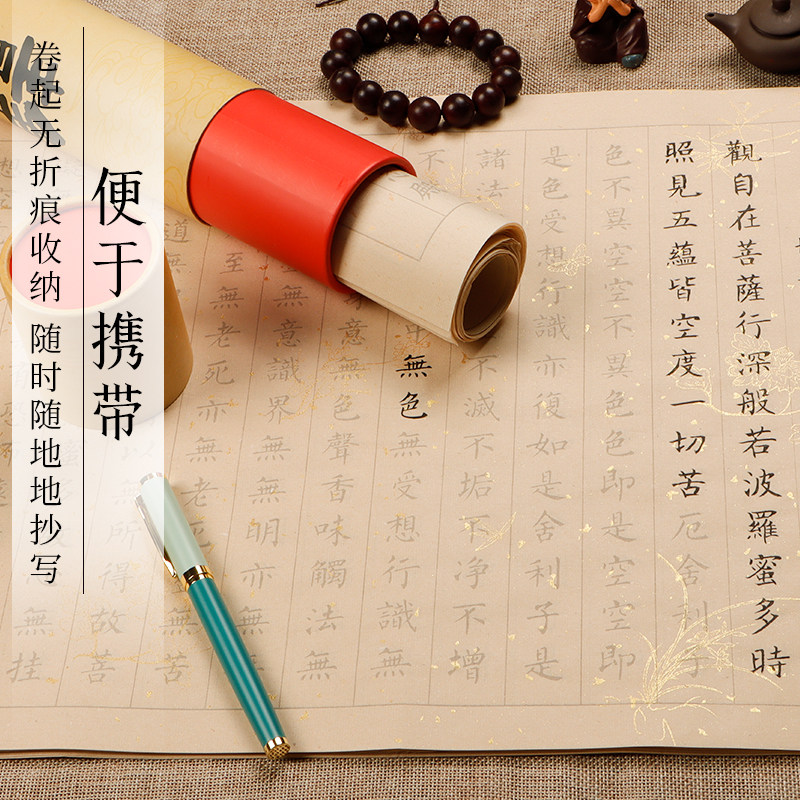 便于携带
卷起无折痕收纳 随时随地地抄写
觀自在菩薩行深般若波羅蜜多時
照見五蘊皆空度一切苦厄舍利子
色不異空空不異色色即是空空即
是色受想行識亦復如是舍利子是
諸法不滅不垢不净不增
不無色無受想行識無
無色聲香味觸法無
意識界無無明亦無
至無老死亦無老死無苦
道無無所得故菩
無挂